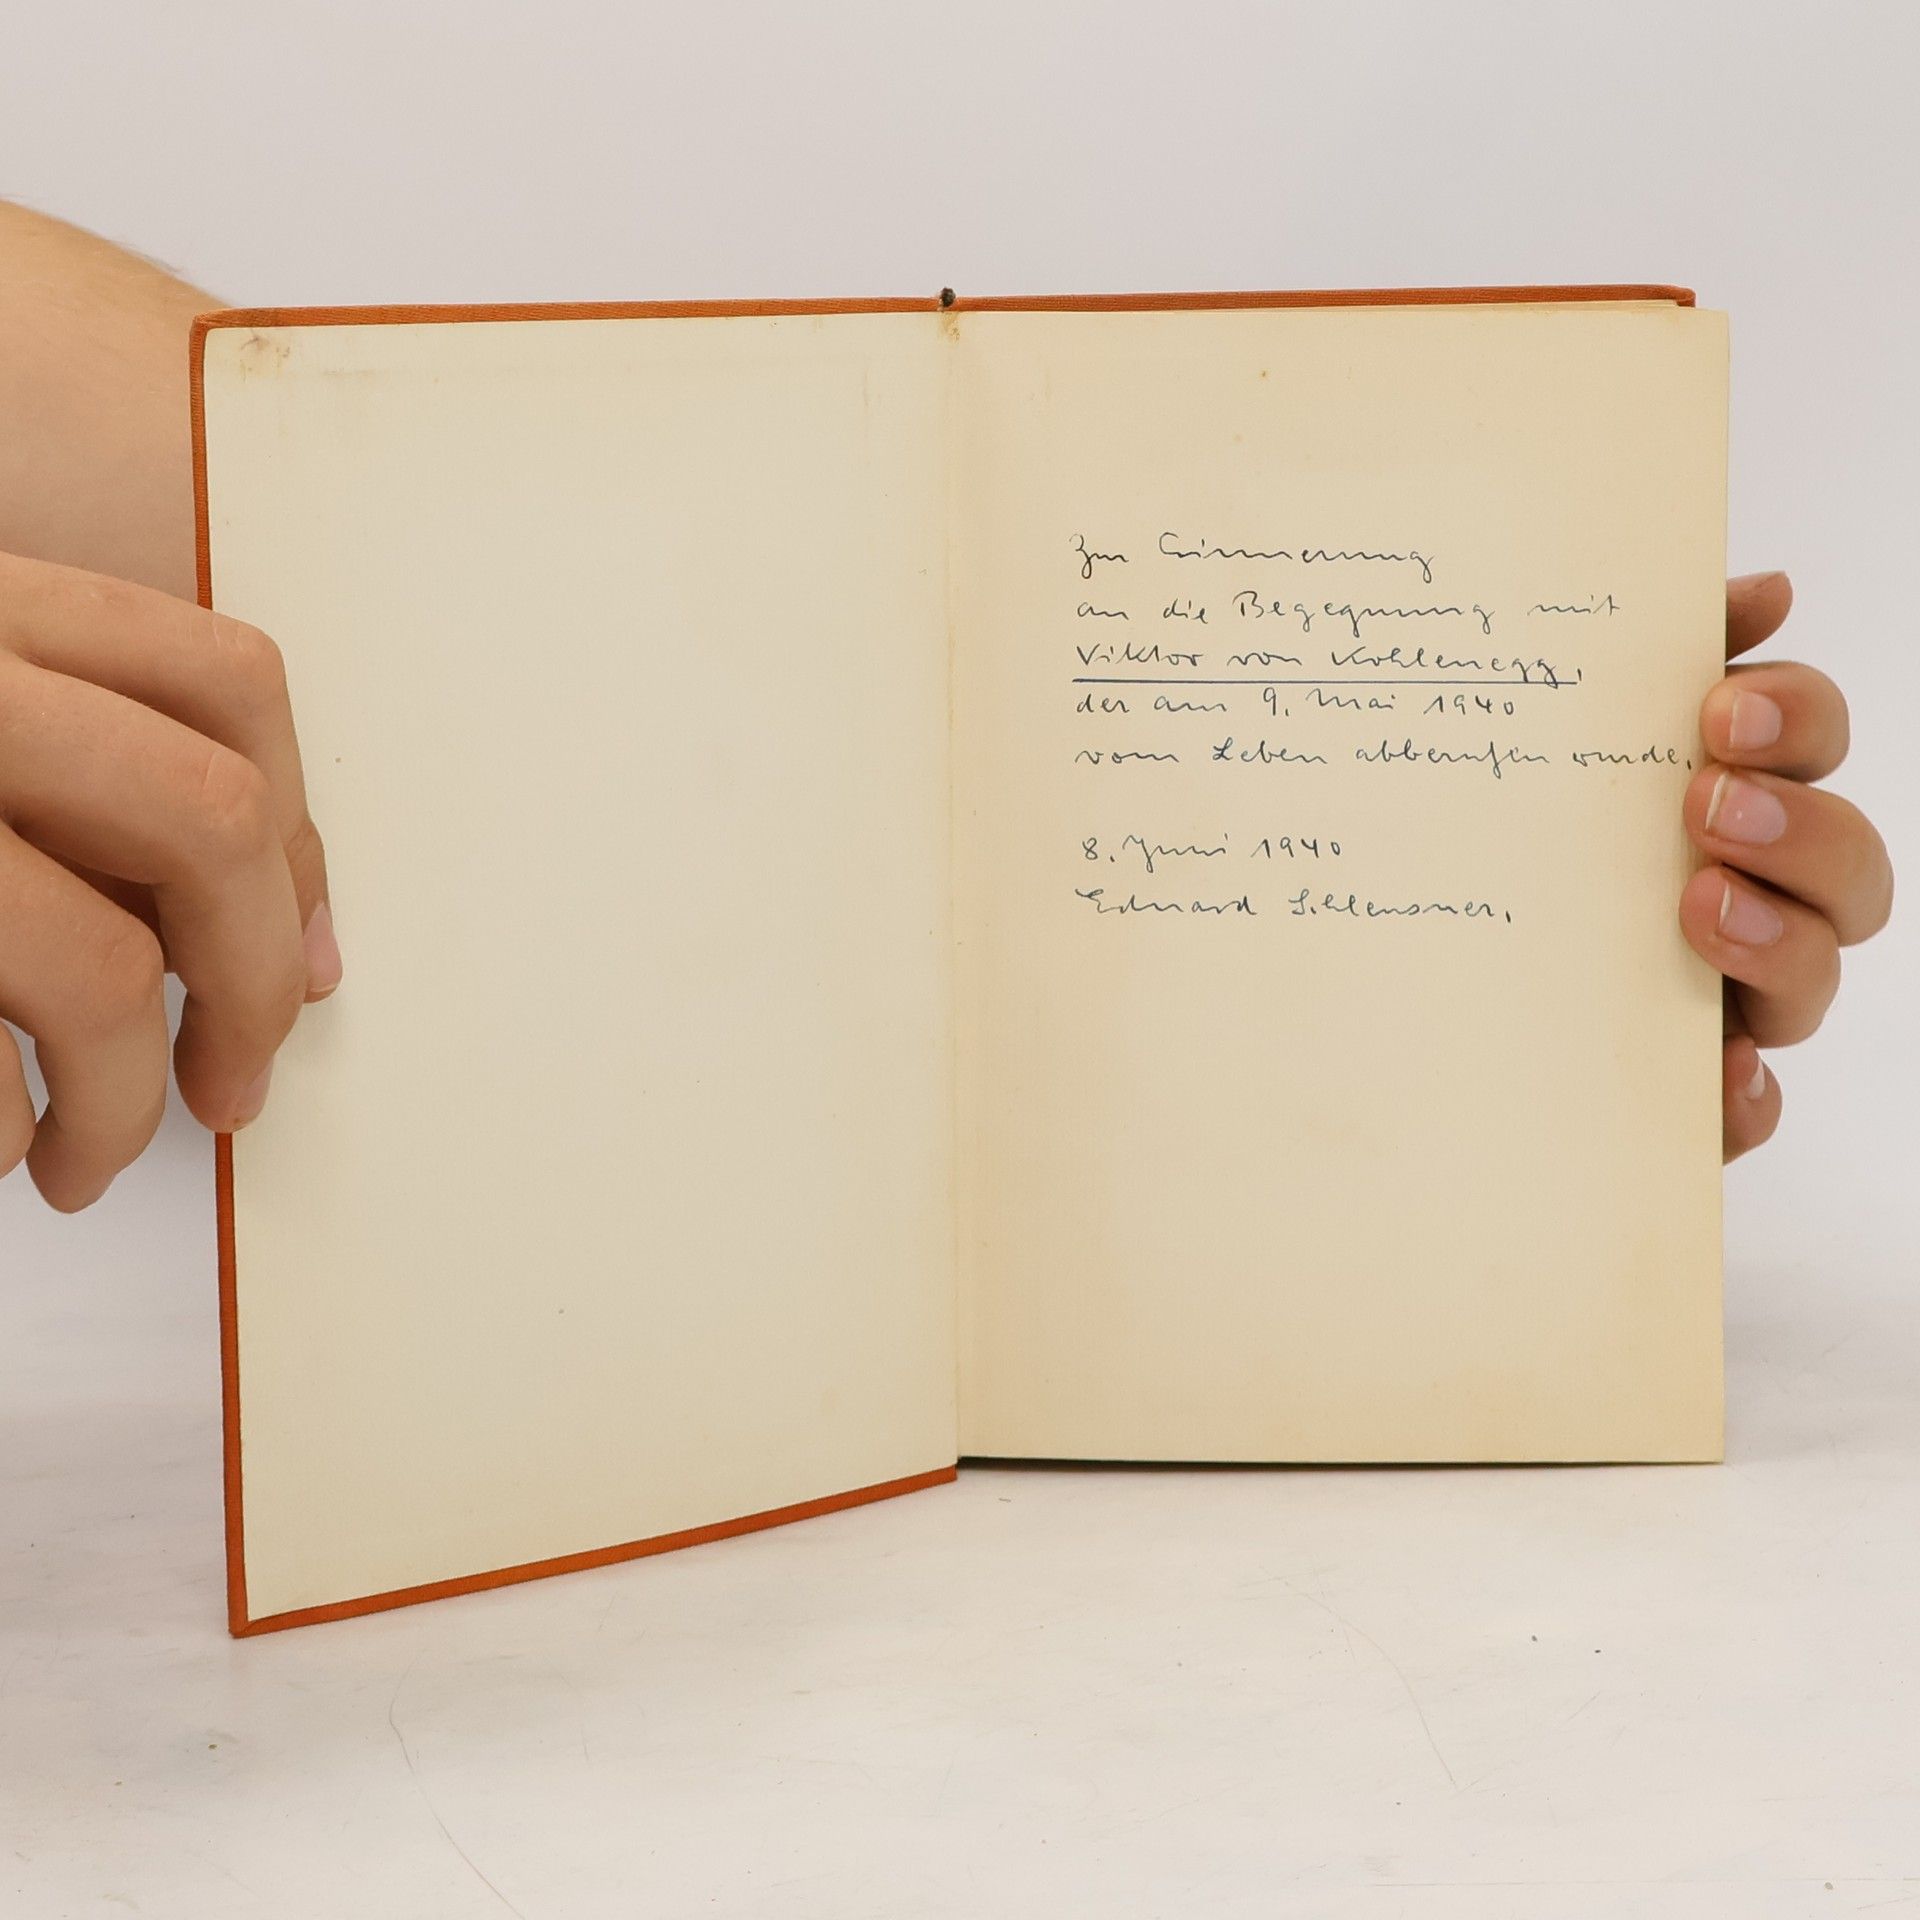 Zur Erinnerung
an die Begegnung mit
Viktor von Kohlenegg,
der am 9. Mai 1940
vom Leben abberufen wurde.
8. Juni 1940
Eduard Schleusner.